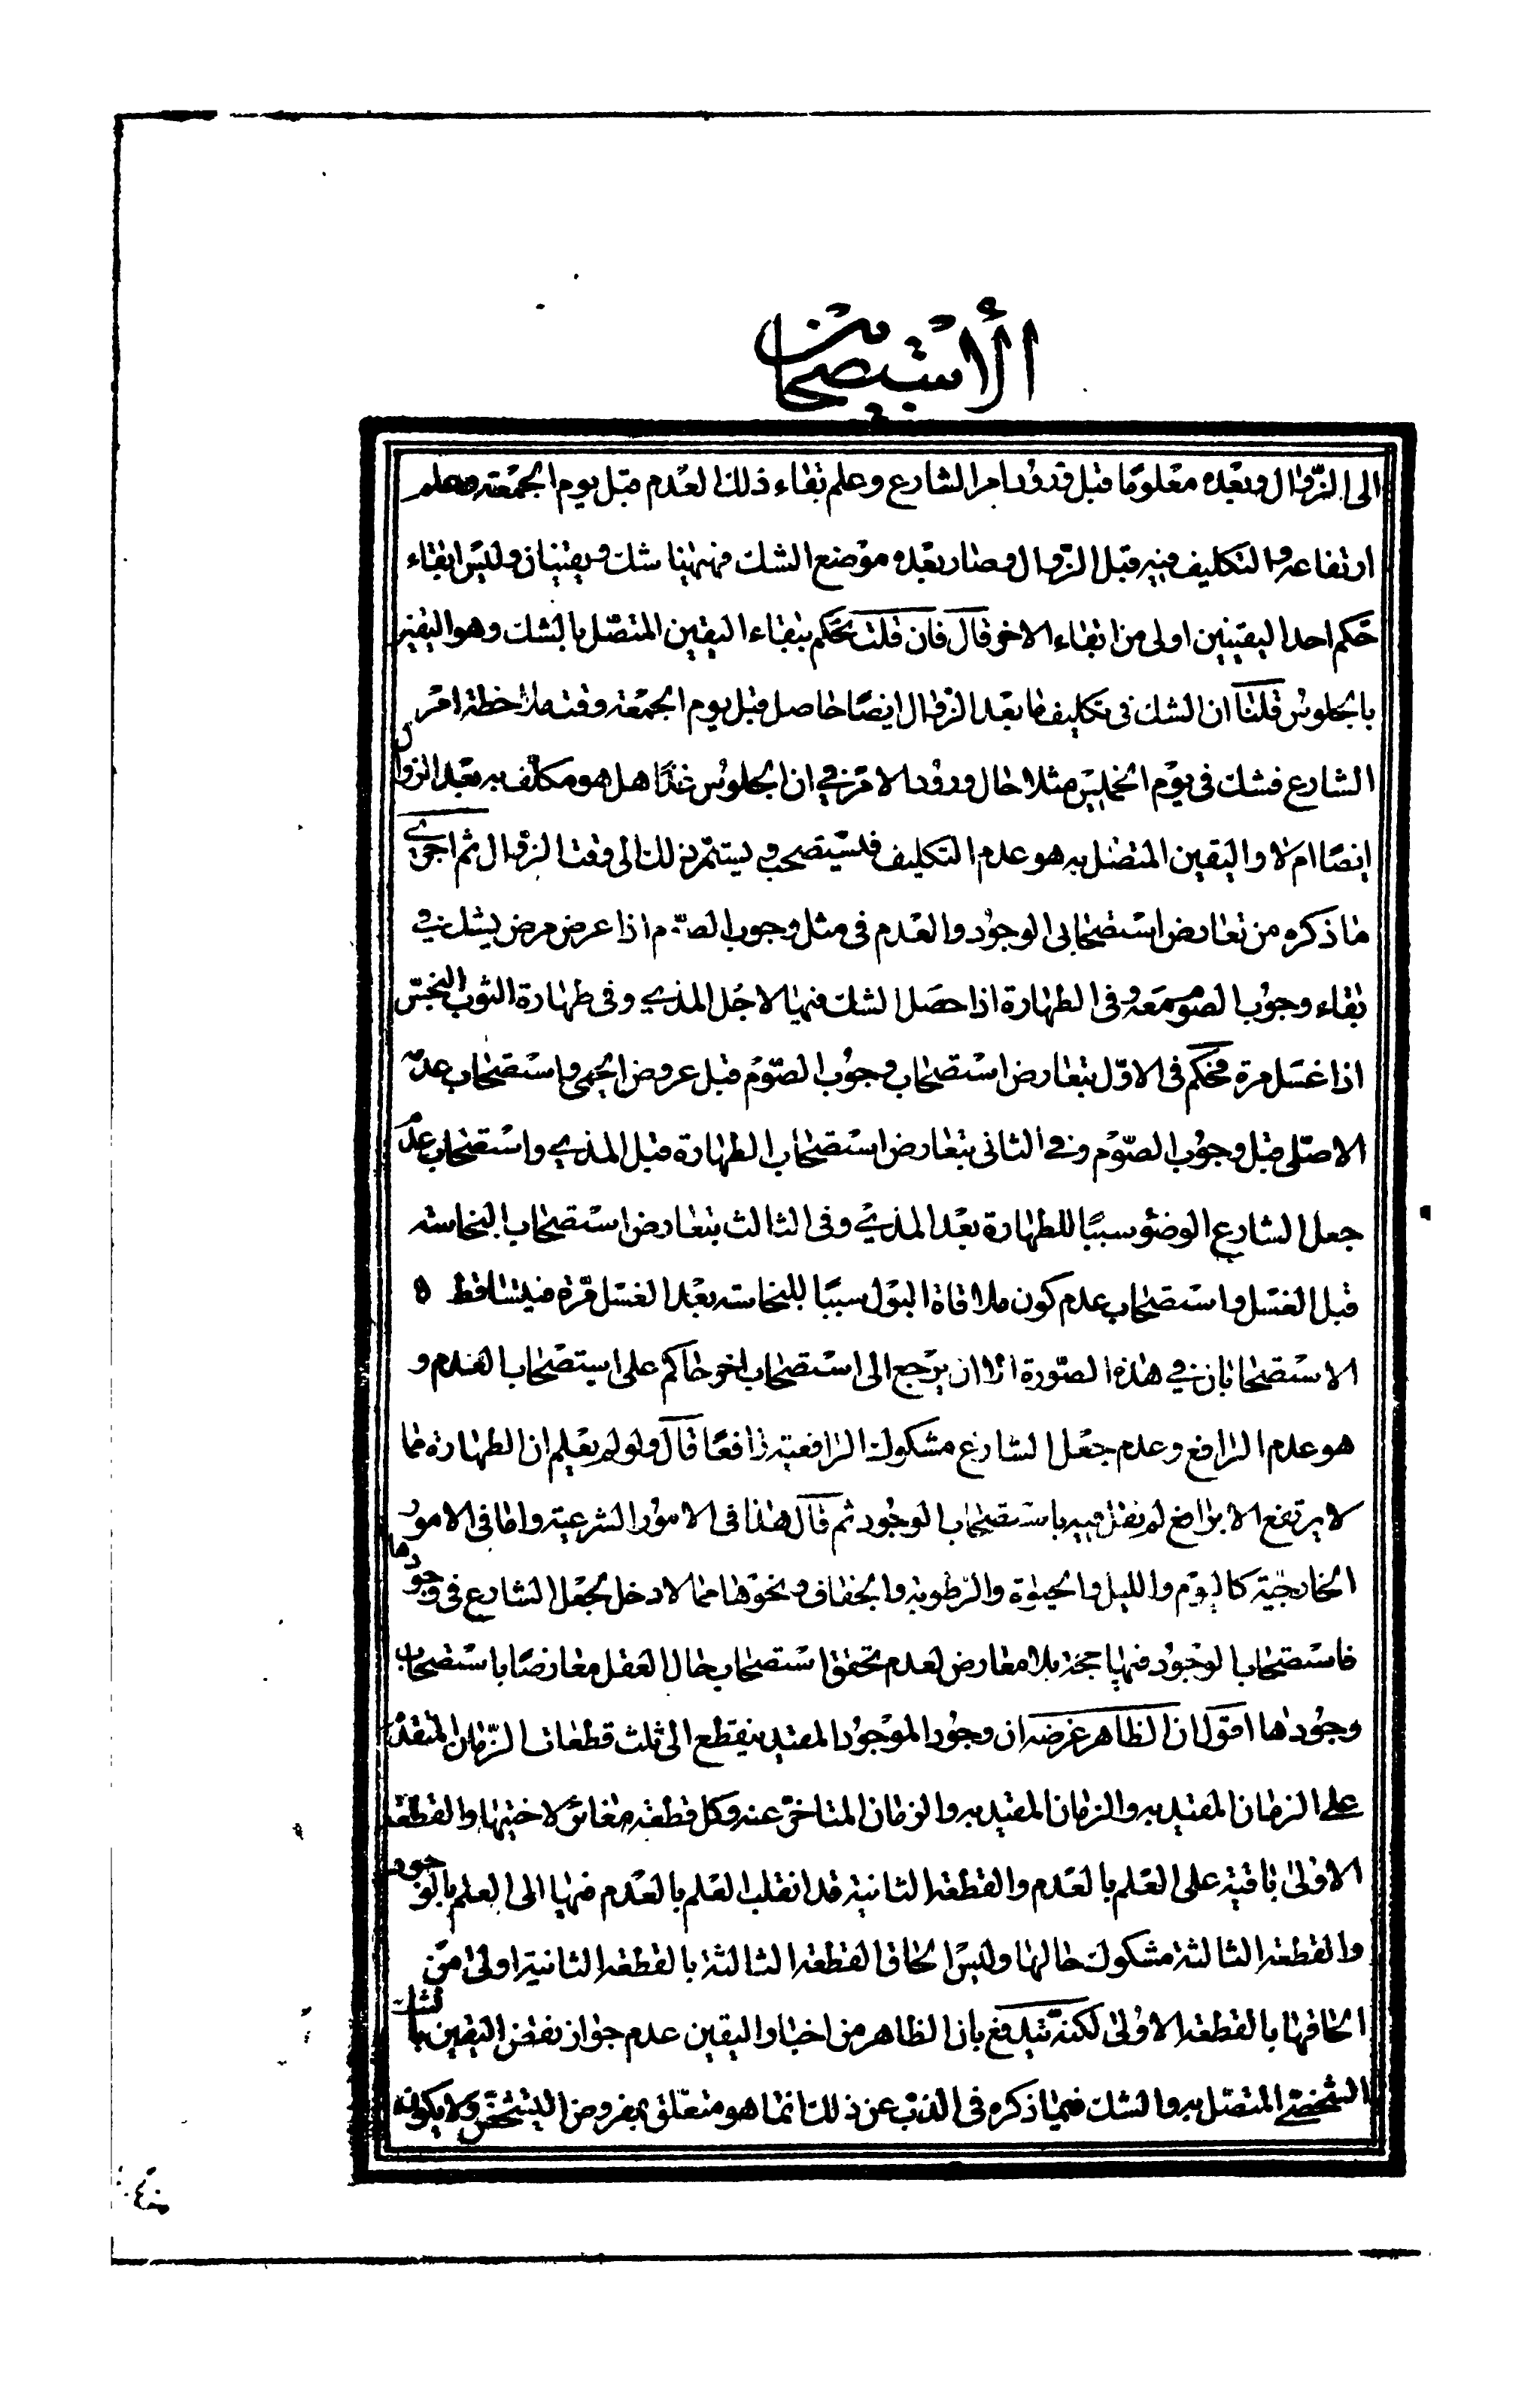 الأستصحاب
الى الزوال وبعده معلومًا قبل ورود امر الشارع وعلم بقاء ذلك العدم قبل يوم الجمعة وعلم
ارتفاعه والتكليف فيه قبل الزوال وصار بعده موضع الشك فهيهنا شك ويقينان وليس ابقاء
حكم احد اليقينين اولى من ابقاء الاخر قال فان قلت نحكم ببقاء اليقين المتصل بالشك وهو اليقين
بالجلوس قلنا ان الشك في تكليف ما بعد الزوال ايضًا حاصل قبل يوم الجمعة وقت ملاحظة امر
الشارع فشك في يوم الخميس مثلا حال ورود الامر في ان الجلوس غدًا هل هو مكلف به بعد الزوال
ايضًا ام لا واليقين المتصل به هو عدم التكليف فيستصحب ويستمر ذلك الى وقت الزوال ثم اجرى
ما ذكره من تعارض استصحابى الوجود والعدم فى مثل وجوب الصوم اذا عرض مرض يشك في
بقاء وجوب الصوم معه وفى الطهارة اذا حصل الشك فيها لاجل المذي وفى طهارة الثوب النجس
اذا غسل مرة فحكم فى الاول بتعارض استصحاب وجوب الصوم قبل عروض الحمى واستصحاب عدمه
الاصلى قبل وجوب الصوم وفي الثانى بتعارض استصحاب الطهارة قبل المذي واستصحاب عدم
جعل الشارع الوضوء سببًا للطهارة بعد المذي وفى الثالث بتعارض استصحاب النجاسة
قبل الغسل واستصحاب عدم كون ملاقاة البول سببًا للنجاسة بعد الغسل مرة فيتساقط ه
الاستصحابان في هذه الصورة الا ان يرجع الى استصحاب اخر حاكم على استصحاب العدم و
هو عدم الرافع وعدم جعل الشارع مشكوك الرافعية رافعًا قال ولو لم يعلم ان الطهارة مما
لا يرتفع الا برافع لم نقل فيه باستصحاب الوجود ثم قال هذا فى الامور الشرعية واما فى الامور
الخارجية كاليوم والليل والحيوة والرطوبة والجفاف ونحوها مما لا دخل لجعل الشارع فى وجودها
فاستصحاب الوجود فيها حجة بلا معارض لعدم تحقق استصحاب حال العقل معارضًا باستصحاب
وجودها اقول ان الظاهر غرضه ان وجود الموجود المقيد ينقطع الى ثلث قطعات الزمان المتقدم
على الزمان المقيد به والزمان المقيد به والزمان المتاخر عنه وكل قطعة مغائر لاختيها والقطعة
الاولى باقية على العلم بالعدم والقطعة الثانية قد انقلب العلم بالعدم فيها الى العلم بالوجود
والقطعة الثالثة مشكوك حالها وليس الحاق القطعة الثالثة بالقطعة الثانية اولى من
الحاقها بالقطعة الاولى لكنه يندفع بان الظاهر من اخبار اليقين عدم جواز نقض اليقين بالشك
الشخصي المتصل به والشك فيما ذكره فى الذب عن ذلك انما هو متعلق بمفروض التشخص ولا يكون